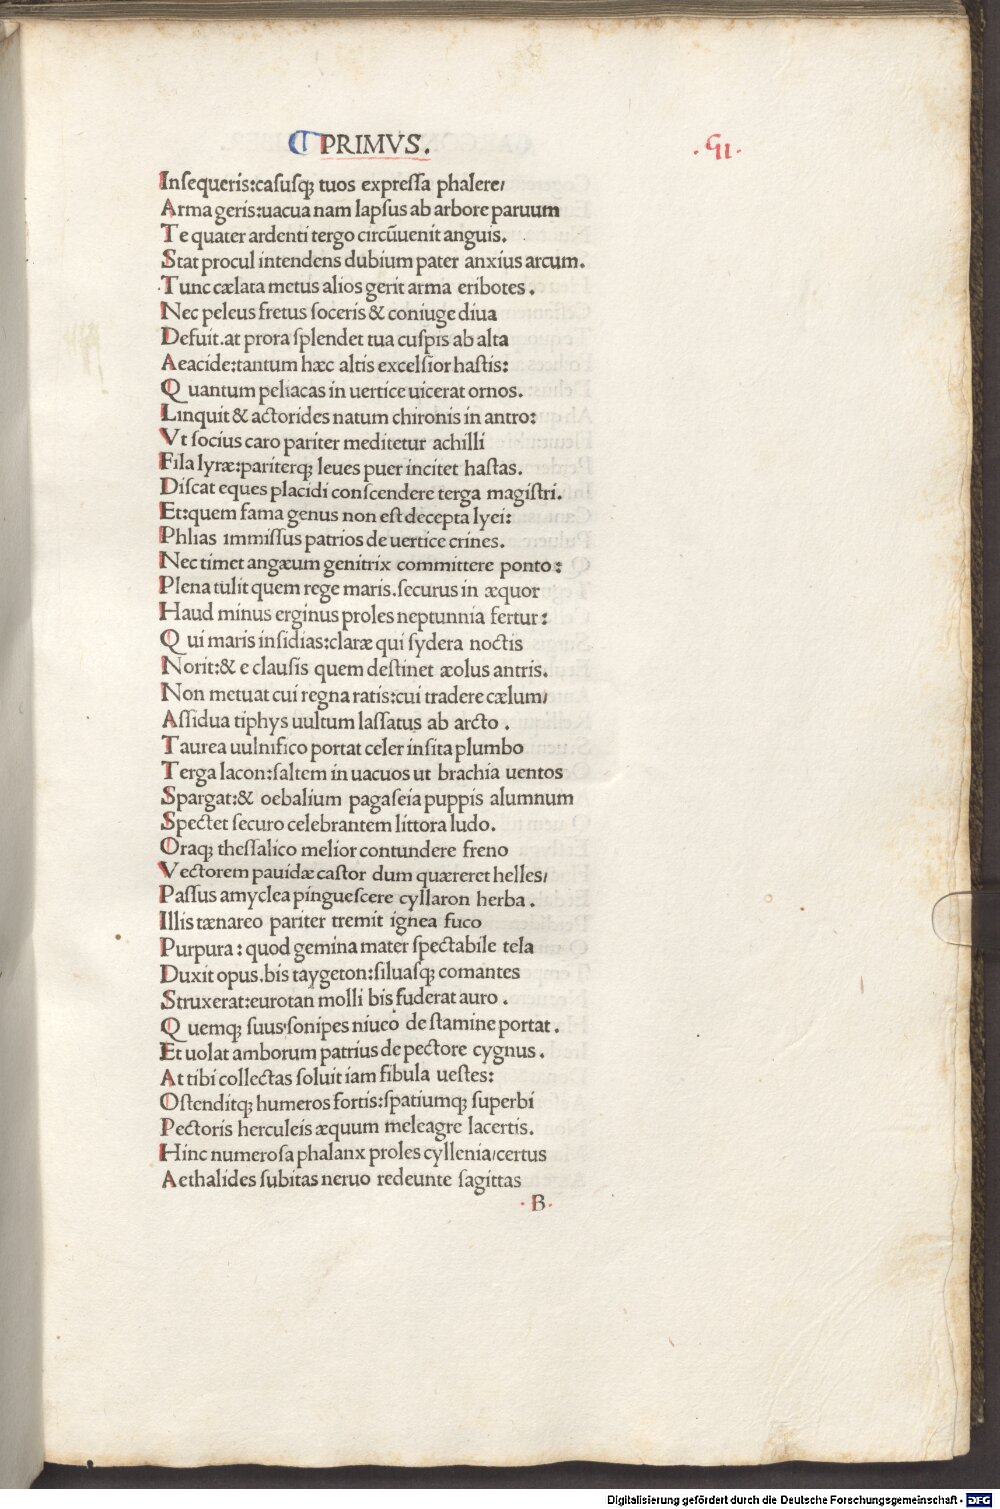 PRIMVS.
Inſequeris:caſuſq; tuos expreſſa phalere/
Arma geris:uacua nam lapſus ab arbore paruum
Te quater ardenti tergo circūuenit anguis.
Stat procul intendens dubium pater anxius arcum.
Tunc cælata metus alios gerit arma eribotes.
Nec peleus fretus ſoceris & coniuge diua
Defuit.at prora ſplendet tua cuſpis ab alta
Aeacide:tantum hæc altis excelſior haſtis:
Quantum peliacas in uertice uicerat ornos.
Linquit & actorides natum chironis in antro:
Vt ſocius caro pariter meditetur achilli
Fila lyræ:pariterq; leues puer incitet haſtas.
Diſcat eques placidi conſcendere terga magiſtri.
Et:quem fama genus non eſt decepta lyei:
Phlias immiſſus patrios de uertice crines.
Nec timet angæum genitrix committere ponto:
Plena tulit quem rege maris.ſecurus in æquor
Haud minus erginus proles neptunnia fertur:
Qui maris inſidias:claræ qui ſydera noctis
Norit:& e clauſis quem deſtinet æolus antris.
Non metuat cui regna ratis:cui tradere cælum/
Aſſidua tiphys uultum laſſatus ab arcto.
Taurea uulnifico portat celer inſita plumbo
Terga lacon:ſaltem in uacuos ut brachia uentos
Spargat:& oebalium pagaſeia puppis alumnum
Spectet ſecuro celebrantem littora ludo.
Oraq; theſſalico melior contundere freno
Vectorem pauidæ caſtor dum quæreret helles/
Paſſus amyclea pingueſcere cyllaron herba.
Illis tænareo pariter tremit ignea fuco
Purpura: quod gemina mater ſpectabile tela
Duxit opus.bis taygeton:ſiluaſq; comantes
Struxerat:eurotan molli bis fuderat auro.
Quemq; ſuus ſonipes niueo de ſtamine portat.
Et uolat amborum patrius de pectore cygnus.
At tibi collectas ſoluit iam fibula ueſtes:
Oſtenditq; humeros fortis:ſpatiumq; ſuperbi
Pectoris herculeis æquum meleagre lacertis.
Hinc numeroſa phalanx proles cyllenia/certus
Aethalides ſubitas neruo redeunte ſagittas
.B.
Digitalisierung gefördert durch die Deutsche Forschungsgemeinschaft - DFG